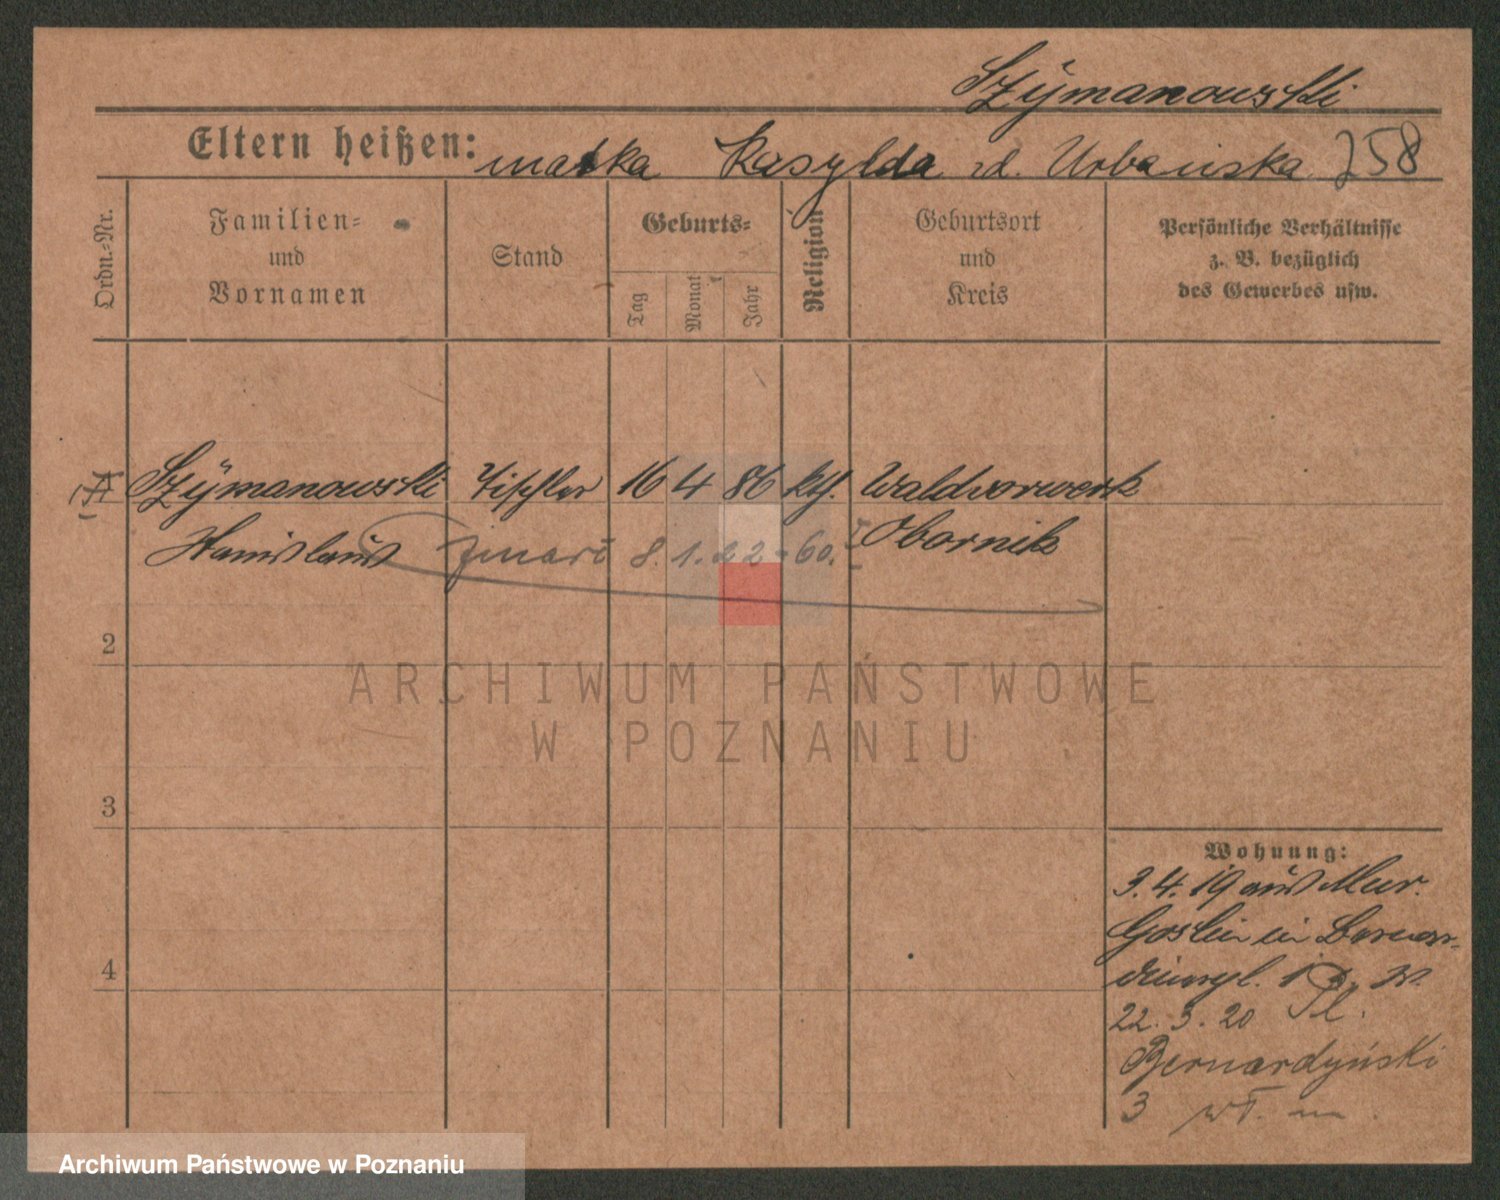 Szÿmanowski
Eltern heißen: matka Kasylda zd. Urbańska 758
Ordn.-Nr.
Familien-
und
Vornamen
Stand
Geburts-
Tag
Monat
Jahr
Religion
Geburtsort
und
Kreis
Persönliche Verhältnisse
z. B. bezüglich
des Gewerbes usw.
Szÿmanowski Tischler 16 4 86 kth. Waldvorwerk
Stanislaus zmarł 8. 1. 22 - 60. Obornik
2
ARCHIWUM PAŃSTWOWE
W POZNANIU
3
Wohnung:
3. 4. 19 aus Mur.
Goslin in Bernar-
dinerpl.
22. 3. 20 Pl.
Bernardyński
3 wł. m
4
Archiwum Państwowe w Poznaniu